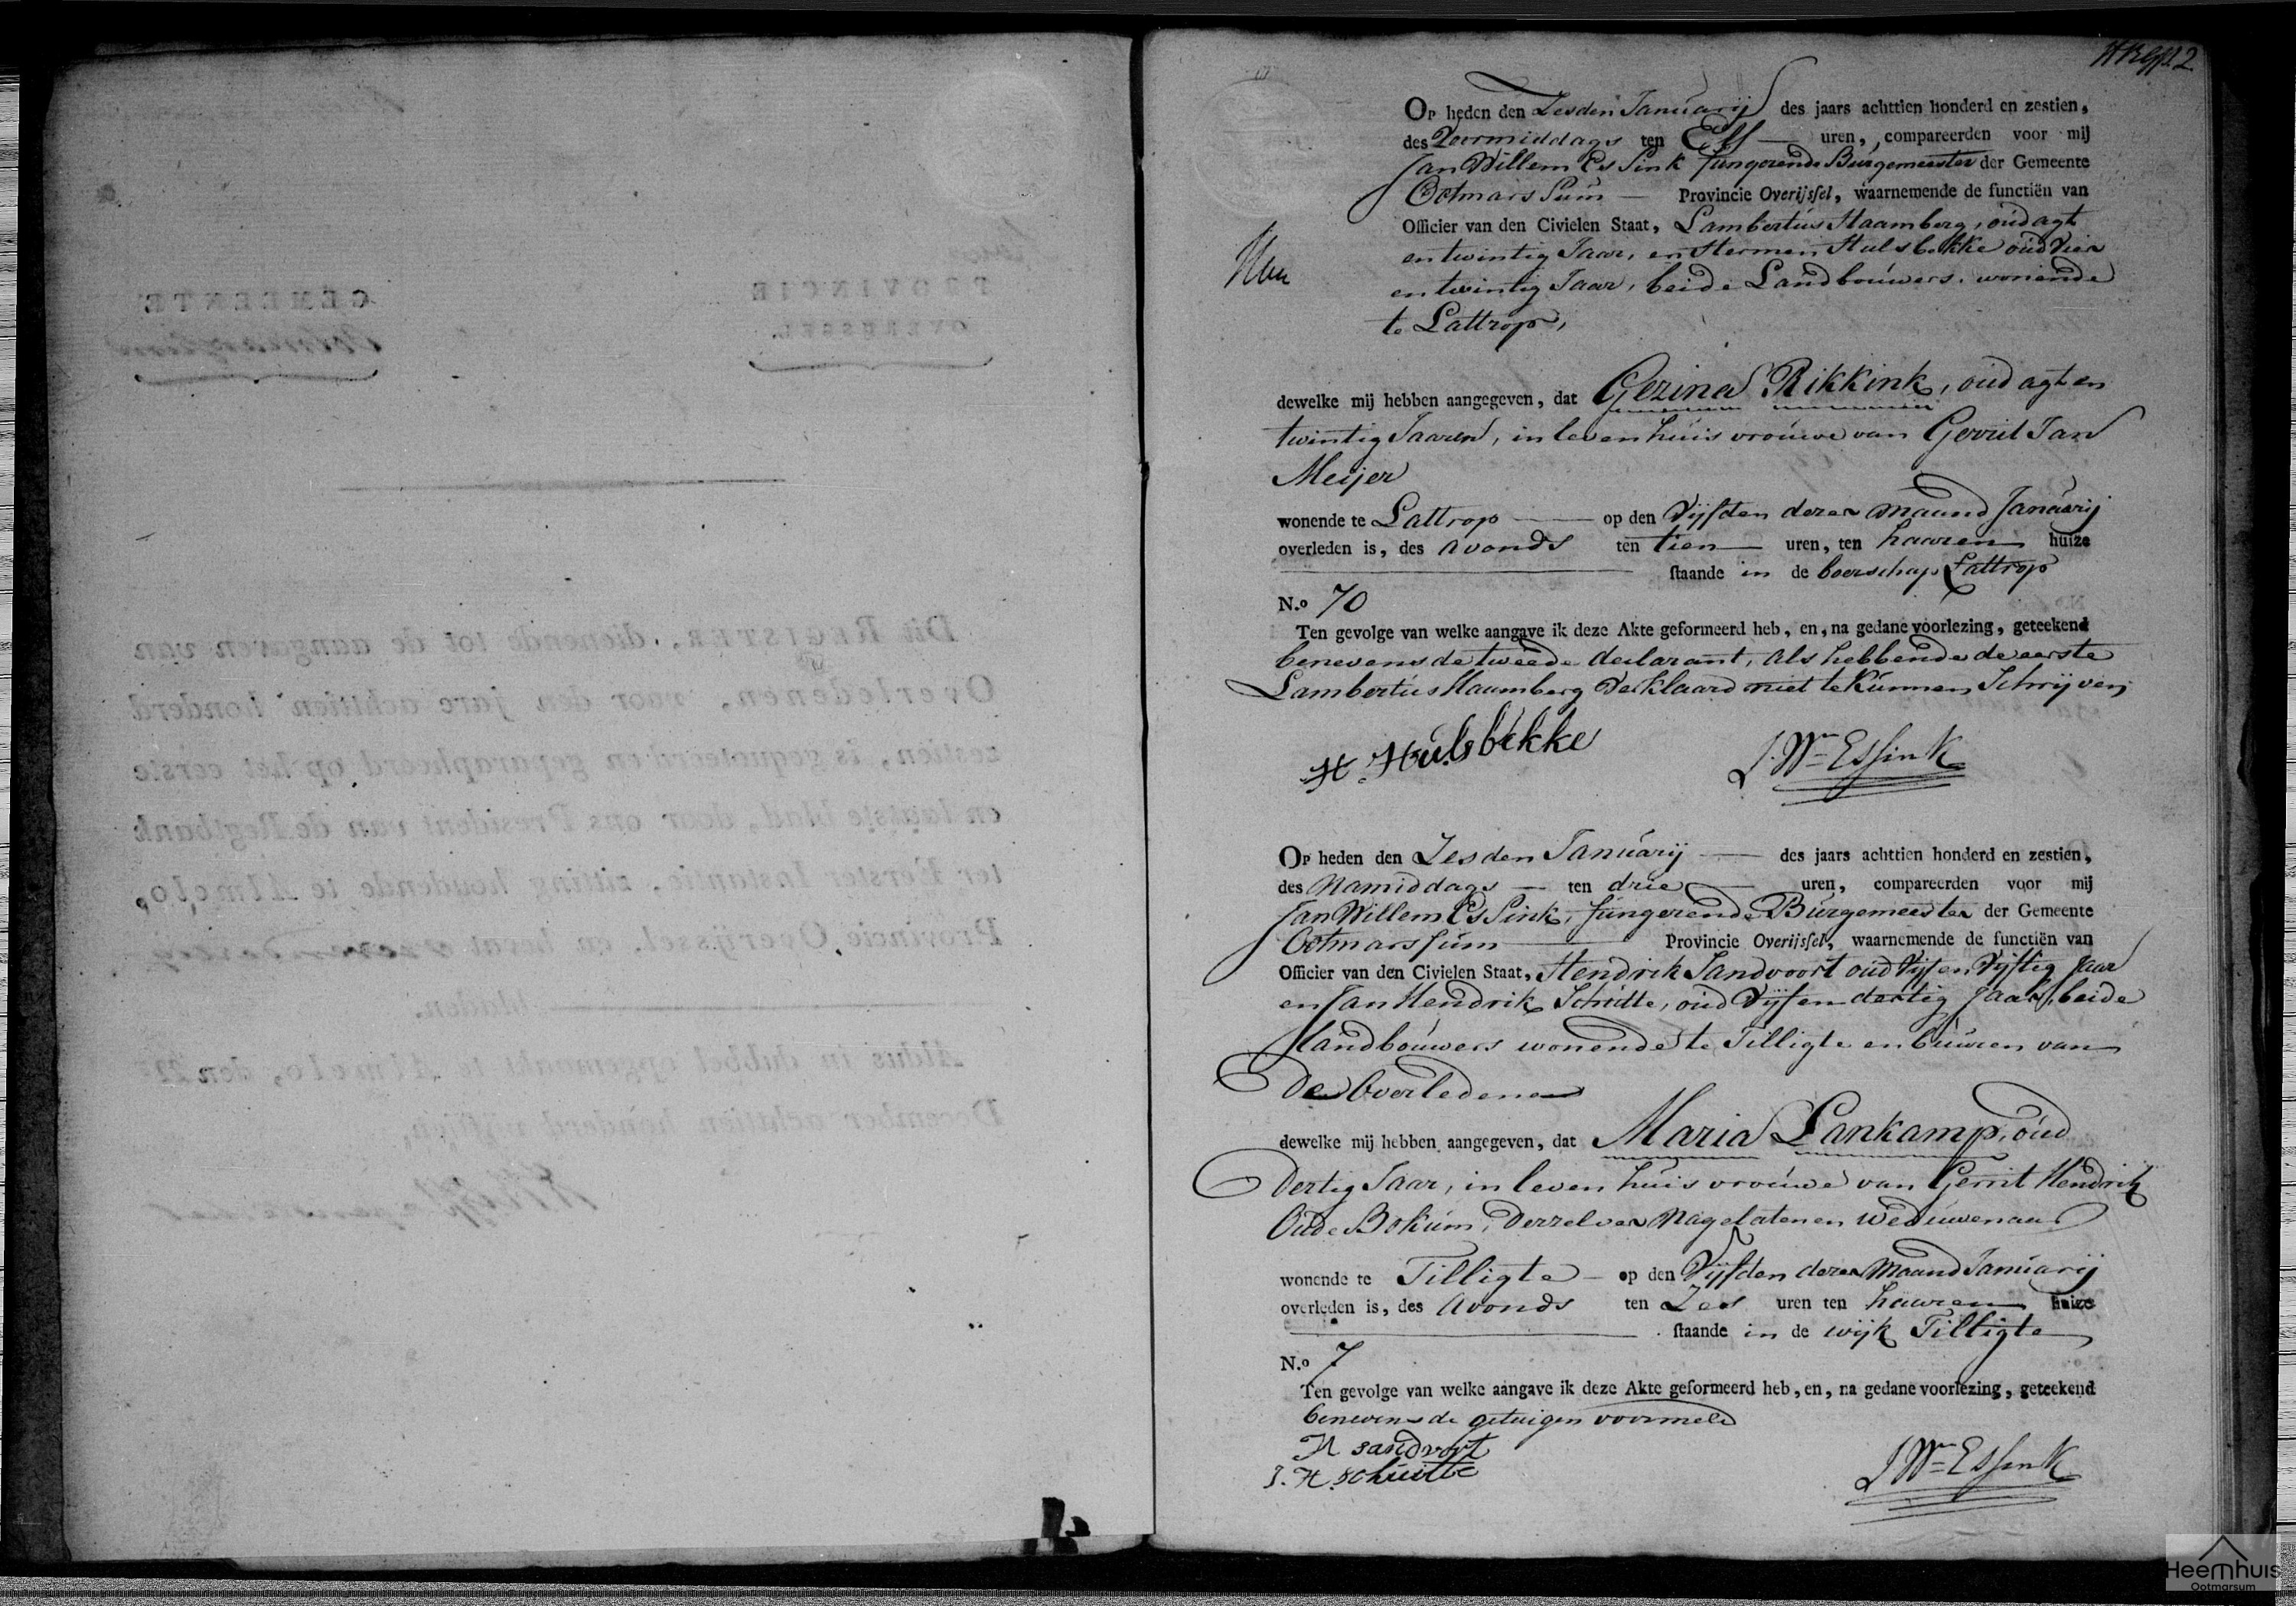 Op heden den Zesden Januarij des jaars achttien honderd en zestien,
des Voormiddags ten Elf uren, compareerden voor mij
Jan Willem Essink fungerende Burgemeester der Gemeente
Ootmarssum Provincie Overijssel, waarnemende de functiën van
Officier van den Civielen Staat, Lambertus Haamberg, oud agt
en twintig Jaar, en Hermen Hulsbekke oud vier
en twintig Jaar, beide Landbouwers, wonende
te Lattrop,
dewelke mij hebben aangegeven, dat Gezina Rikkink, oud agt en
twintig Jaaren, in leven huisvrouwe van Gerrit Jan
Meijer
wonende te Lattrop op den Vijfden dezer maand Januarij
overleden is, des avonds ten tien uren, ten haaren huize
staande in de boerschap Lattrop
N.o 70
Ten gevolge van welke aangave ik deze Akte geformeerd heb, en, na gedane voorlezing, geteekend
benevens de tweede declarant, als hebbende de eerste
Lambertus Haamberg verklaard niet te kunnen Schrijven
H. Hulsbekke
J. Wm Essink
Op heden den Zesden Januarij des jaars achttien honderd en zestien,
des Namiddags ten drie uren, compareerden voor mij
Jan Willem Essink, fungerende Burgemeester der Gemeente
Ootmarssum Provincie Overijssel, waarnemende de functiën van
Officier van den Civielen Staat, Hendrik Sandvoort oud Vijf en Vijftig Jaar
en Jan Hendrik Schutte, oud Vijf en dertig Jaar, beide
Landbouwers wonende te Tilligte en buuren van
de Overledene
dewelke mij hebben aangegeven, dat Maria Lankamp, oud
dertig Jaar, in leven huisvrouwe van Gerrit Hendrik
Oude Bokum, derzelver Nagelatenen Weduwenaar
wonende te Tilligte op den Vijfden dezer Maand Januarij
overleden is, des avonds ten Zes uren ten haaren huize
staande in de wijk Tilligte
N.o 7
Ten gevolge van welke aangave ik deze Akte geformeerd heb, en, na gedane voorlezing, geteekend
benevens de getuigen voormeld
H sandvort
J. H. schuitte
J Wm Essink
Heemhuis
Ootmarsum